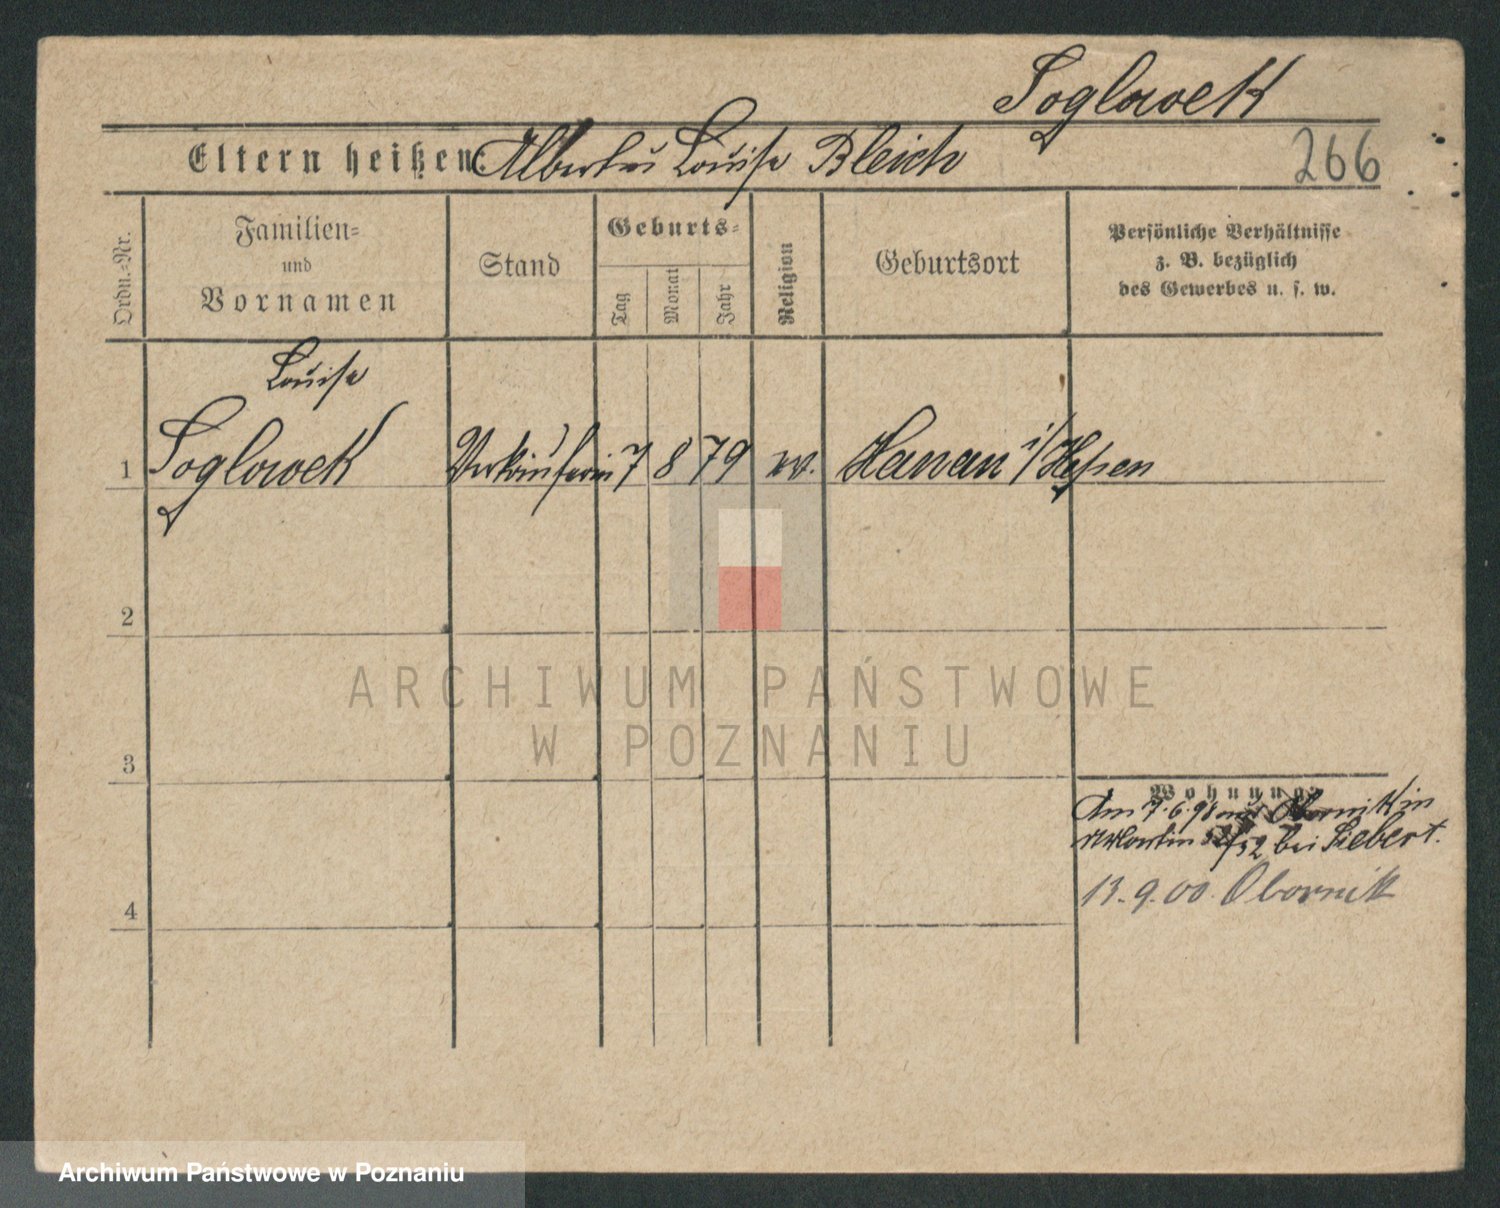 Soglowek
Eltern heißen: Albert u Louise Bleich 266
Ordn.-Nr.
Familien-
und
Vornamen
Stand
Geburts-
Tag
Monat
Jahr
Religion
Geburtsort
Persönliche Verhältnisse
z. B. bezüglich
des Gewerbes u. s. w.
Louise
1 Soglowek Verkäuferin 7 8 79 ev. Hanau i/Hessen
2
ARCHIWUM PAŃSTWOWE
W POZNANIU
3
Wohnung:
Am 7.6.98 aus Obornik in
bei Siebert.
4
13.9.00. Obornik
Archiwum Państwowe w Poznaniu